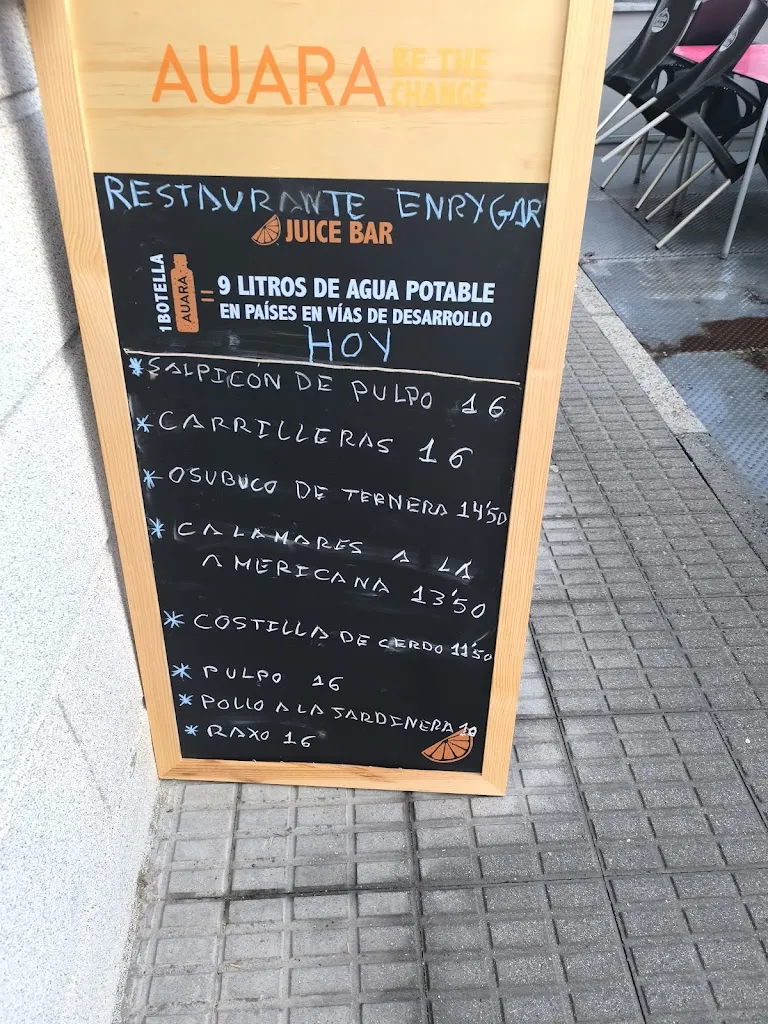 AUARA BE THE CHANGE
RESTAURANTE ENRYGAR
JUICE BAR
1 BOTELLA AUARA = 9 LITROS DE AGUA POTABLE
EN PAÍSES EN VÍAS DE DESARROLLO
HOY
*SALPICÓN DE PULPO 16
*CARRILLERAS 16
*OSUBUCO DE TERNERA 14'50
*CALAMARES A LA
AMERICANA 13'50
*COSTILLA DE CERDO 11'50
*PULPO 16
*POLLO A LA JARDINERA 10
*RAXO 16